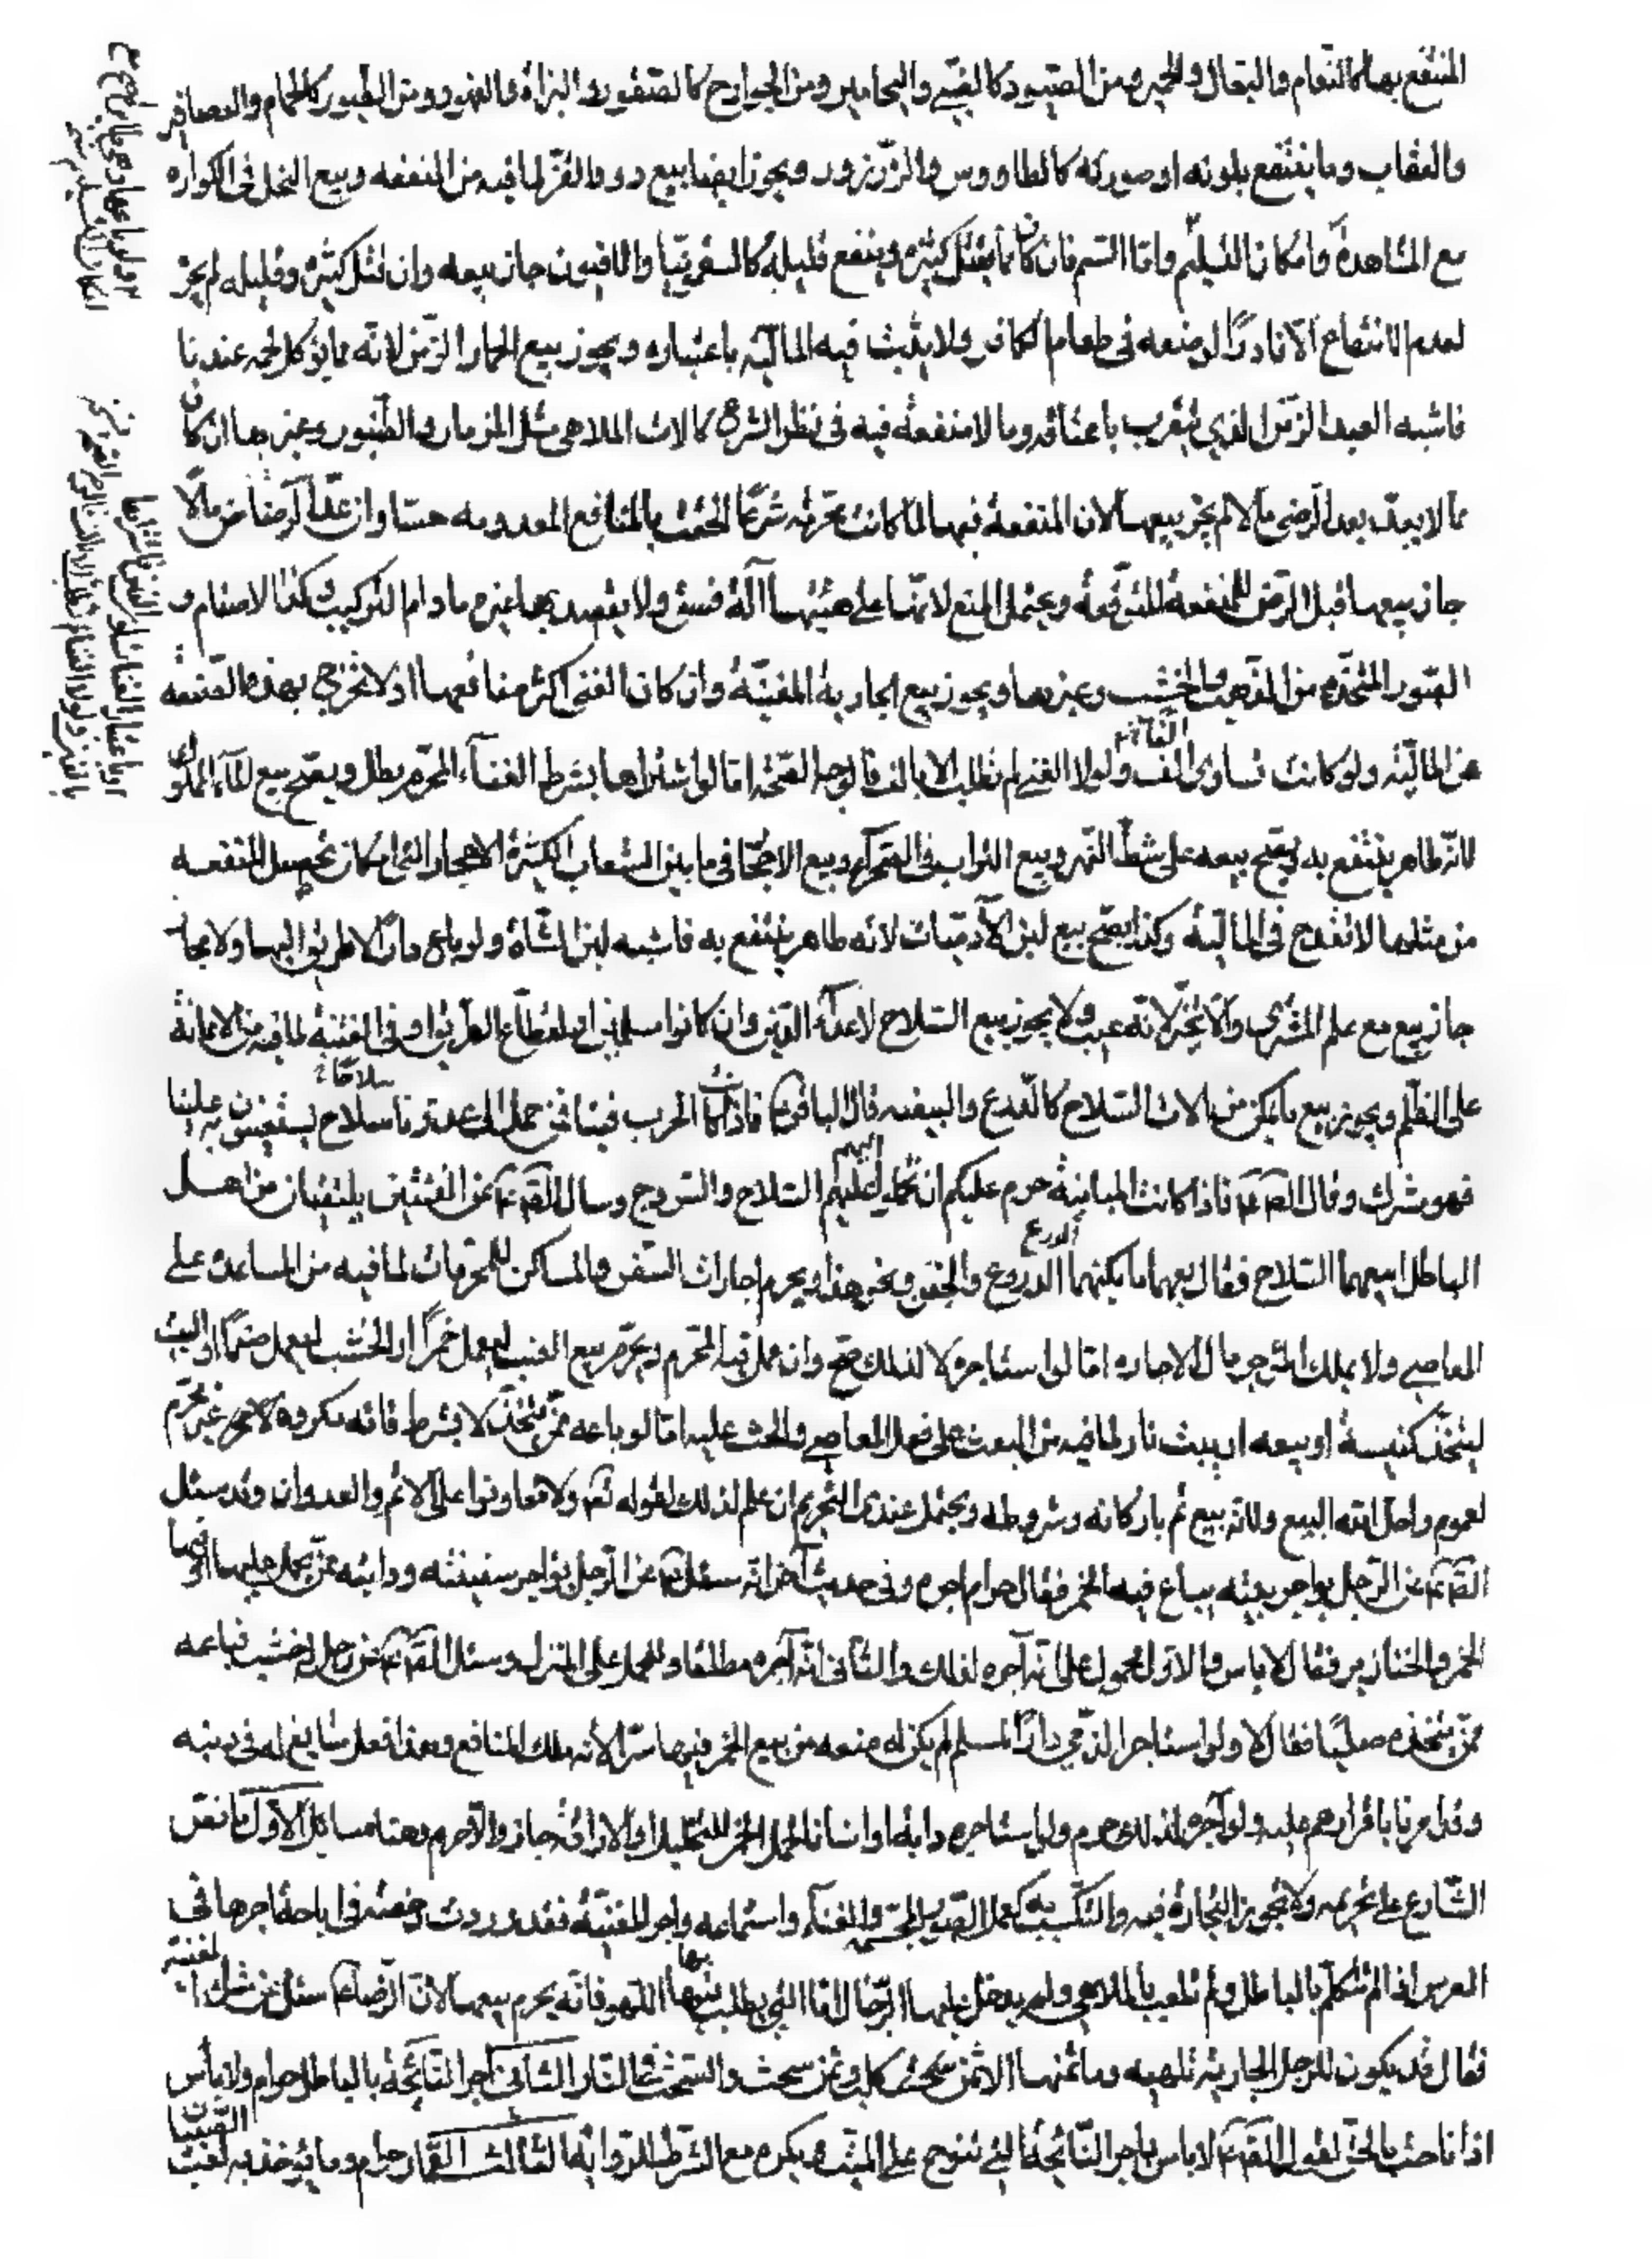 المنتفع بها كالنعام والبغال والحمير ومن الصيود كالظبي واليحامير ومن الجوارح كالصقور والبزاة والفهود ومن الطيور كالحمام والعصافير
والعقاب وما ينتفع بلونه او صورته كالطاووس والزرزور ويجوز ايضا بيع دود القز لما فيه من المنفعه وبيع النحل في الكواره
مع المشاهدة وامكان التسليم وامّا السّم فان كان ممّا يقتل كثيره وينتفع قليله كالسقمونيا والافيون جاز بيعه وان قتل كثيره وقليله لم يجز
لعدم الانتفاع الّا نادرًا لوضعه في طعام الكافر ولا يثبت فيه الماليّة باعتباره ويجوز بيع الحمار الزّمن لانّه مما يؤكل لحمه عندنا
فاشبه العبد الزّمن الذي يتقرب باعتاقه وما لا منفعة فيه في نظر الشرع كالات الملاهي مثل المزمار والطنبور وغيرهما ان كان
ممّا لا يعدّ بعد الرّضّ مالا لم يجز بيعها لان المنفعة فيها لمّا كانت محرّمه شرعًا التحقت بالمنافع المعدومه حسّا وان عدّ الرضاض مالًا
جاز بيعها قبل الرّضّ للمنفعة المتوقّعة ويحتمل المنع لانّها على هيئتها آلة فسق ولا يقصد بها غيره ما دام التركيب وكذا الاصنام و
الصّور المتّخذه من الذّهب والخشب وغيرهما ويجوز بيع الجارية المغنّية وان كان الغنى اكثر منافعها اذ لا تخرج بهذه الصّنعه
عن الماليّة ولو كانت تساوى الف ولولا الغنى لم تطلب الا بالف فالوجه الصّحة امّا لو اشتراها بشرط الغنآء المحرّم بطل ويصحّ بيع المآء المملوك
لانّه طاهر ينتفع به ويصحّ بيعه على شطّ النّهر وبيع التراب في الصّحرآء وبيع الاحجار في ما بين الشعاب الكثيرة الاحجار التي امكان تحصيل المنفعه
من مثلها لا تقدح في الماليّة وكذا يصحّ بيع لبن الآدميّات لانه طاهر ينتفع به فاشبه لبن الشّاة ولو باع دارًا لا طريق اليها ولا مجاز
جاز بيع مع علم المشترى والّا تخيّر لانّه عيب ولا يجوز بيع السّلاح لاعدآء الدّين وان كانوا مسلمين او لقطّاع الطّريق او في الفتنة لما فيه من الاعانة
على الظّلم ويجوز بيع ما يكنّ من الات السّلاح كالدّرع والبيضه قال الباقر ع فاذا كانت الحرب فيما فمن حمل الى عدونا سلاح يستعينون به علينا
فهو مشرك وقال الصّ ع فاذا كانت المباينة حرم عليكم ان تحملوا اليهم السّلاح والسّروج وسال الصّ ع عن الفئتين يلتقيان من اهل
الباطل ابيعهما السّلاح فقال بعهما ما يكنهما الدروع والخفّين ونحو هذا ويحرم اجارات السّفن والمساكن للمحرمات لما فيه من المساعدة على
المعاصى ولا يملك المؤجر مال الاجاره امّا لو استاجره لا لذلك صحّ وان عمل فيه المحرّم ويحرّم بيع العنب ليعمل خمرًا او الخشب ليعمل صنمًا او البيت
ليتّخذ كنيسة او بيعه او بيت نار لما فيه من البعث على فعل المعاصى والحثّ عليه امّا لو باعه ممّن يتّخذ لا بشرط فانّه مكروه لا غير محرّم
لعموم واحل الله البيع ولانّه بيع تم باركانه وشروطه ويحتمل عندى التّحريم ان علم لذلك لقوله تعم ولا تعاونوا على الاثم والعدوان وقد سئل
الصّ ع عن الرّجل يواجر بيته يباع فيه الخمر فقال حرام اجره وفي حديث آخر انّه سئل ع عن الرّجل يؤاجر سفينته ودابّته ممّن يحمل عليها او فيها
الخمر والخنازير فقال لا باس والاول محمول على انّه آجره لذلك والثّانى انّه آجره مطلقا وللحمل على المنزل وسئل الصّ ع عن رجل له خشب فباعه
ممّن يتّخذه صلبانًا فقال لا ولو استاجر الذّمي دارًا لمسلم لم يكن له منعه من بيع الخمر فيها سرّا لانّه ملك المنافع وهذا فعل سايغ له في دينه
وقد مرنا باقرارهم عليه ولو آجره لذلك حرم ولو استاجر دابة او انسانا لحمل الخمر للتخليل او الاراقة جاز والّا حرم وهنا مسائل الاول ما نصّ
الشّارع على تحريمه ولا تجويز التّجارة فيه والتّكسّب به كعمل الصّور المجسّمه والغنآء واستماعه واجر المغنيّة فقد وردت رخصة في اباحة اجرها في
العرس اذا لم تتكلّم بالباطل ولم تلعب بالملاهي ولم يدخل عليها الرّجال امّا التي يطلب بها اللّهو فانّه يحرم بيعها لانّ الرّضا ع سئل عن شراء المغنّية
فقال قد يكون للرجل الجارية تلهيه وما ثمنها الا ثمن كلب وثمن الكلب سحت والسّحت في النّار الثّانى اجر النّائحة بالباطل حرام ولا باس
اذا ناحت بالحقّ لقول الصّ ع لا باس باجر النّائحة التي تنوح على الميّت ويكره مع الشّرط للرّواية الثالث القمار حرام وما يؤخذ به لعبت الصّبيان